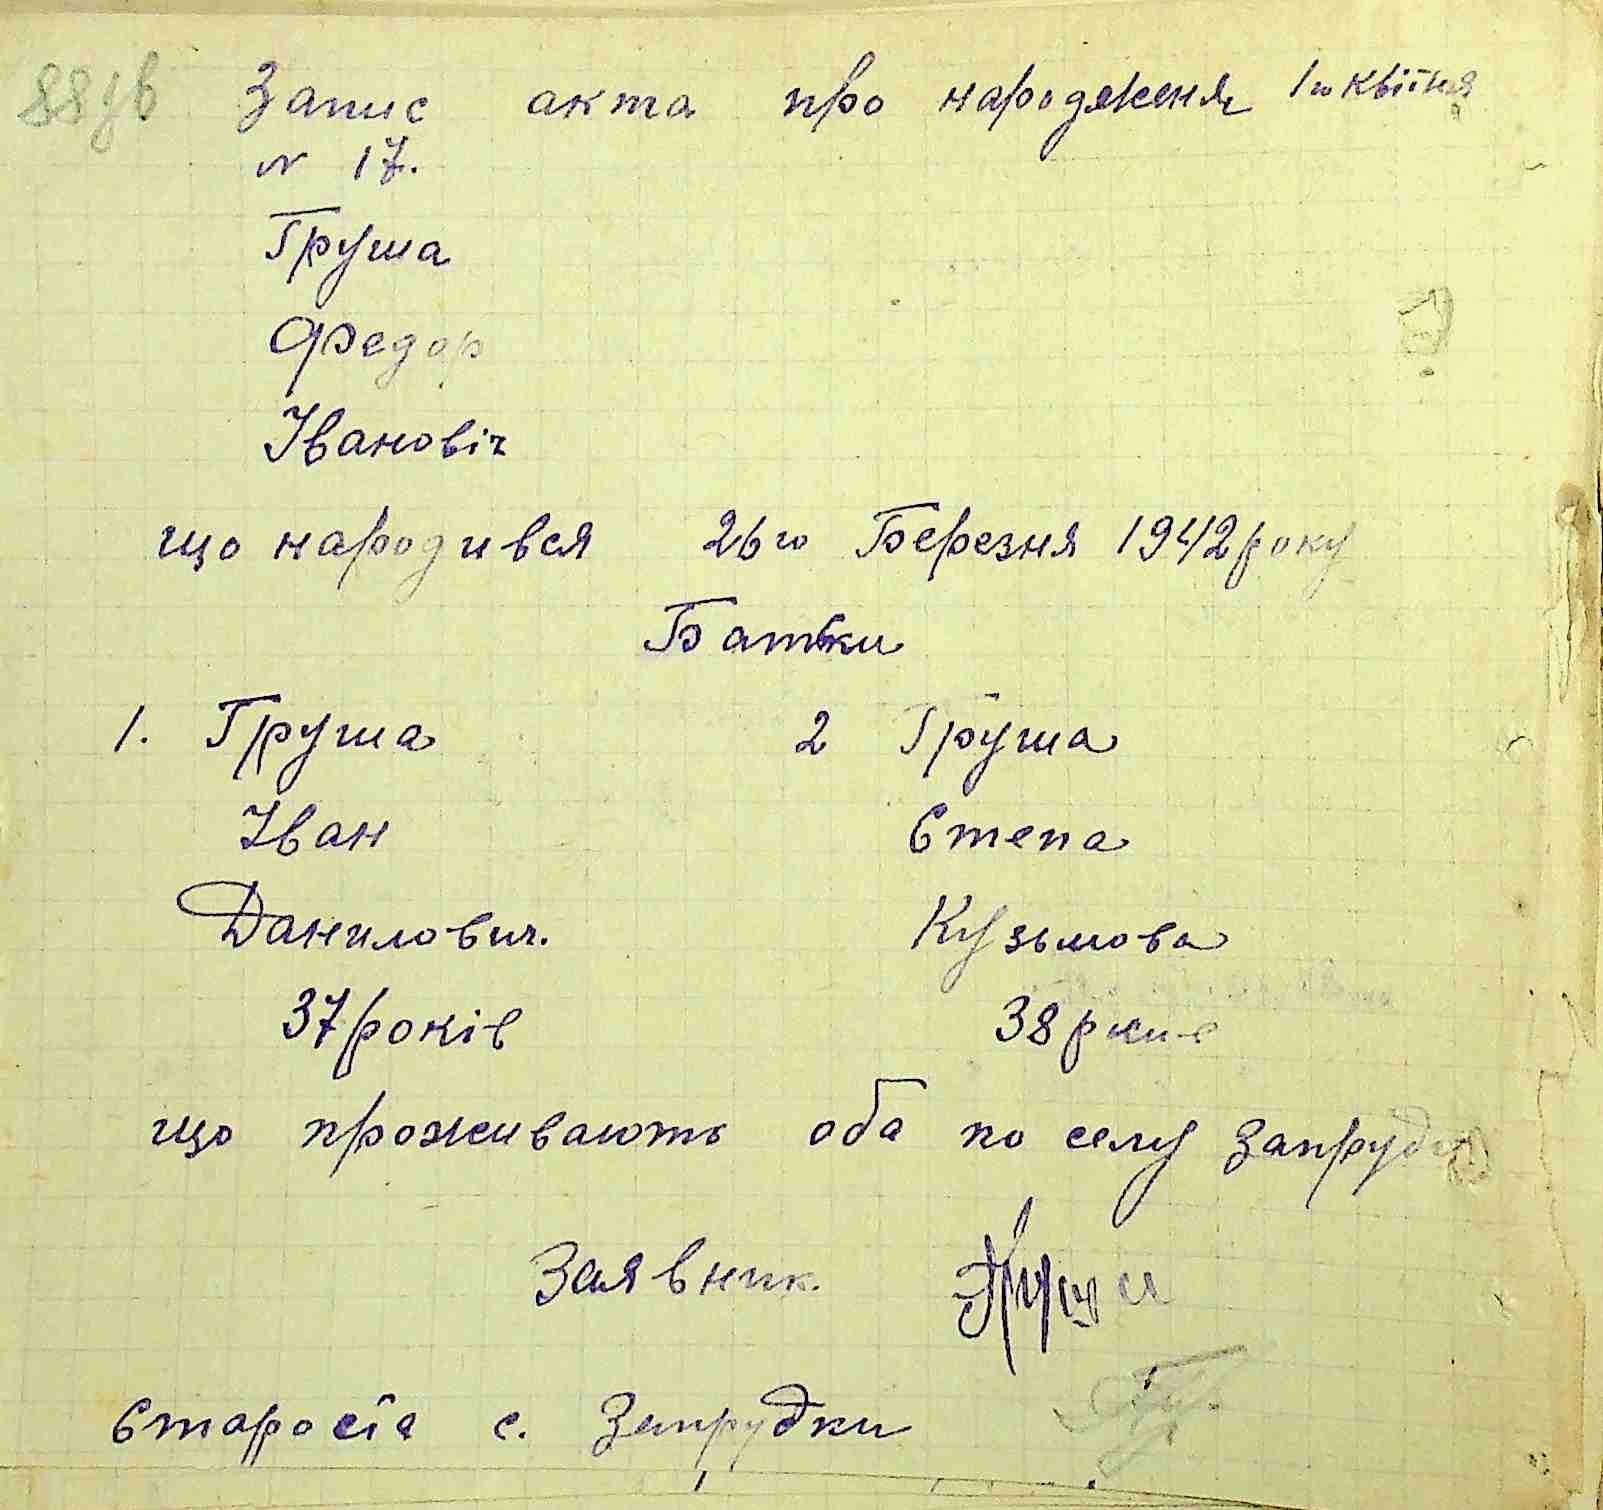 88зв Запис акта про народженя 1го Квітня
№ 17.
Груша
Федор
Івановіч
що народився 26го Березня 1942 року
Батьки
1. Груша 2 Груша
Іван Степа
Данилович. Кузьмова
37 років 38 рків
що проживають оба по селу Запрудки
Заявник
Староста с. Запрудки